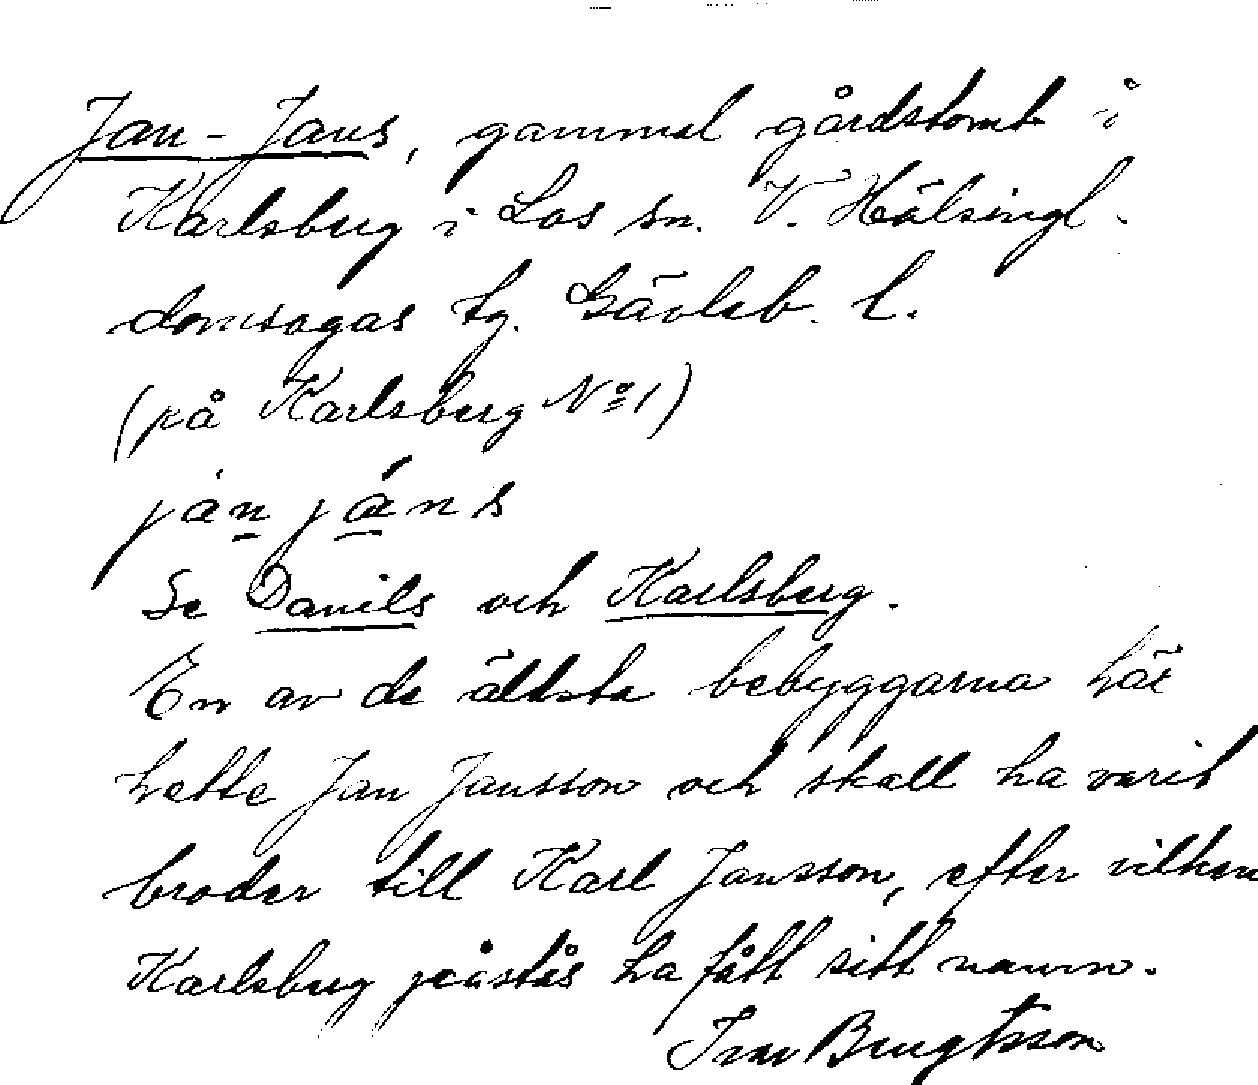 Jan-Jans, gammal gårdstomt i
Karlsberg i Los sn. V. Hälsingl.
domsagas tg. Gävleb. l.
(på Karlsberg No 1)
jan jáns
Se Danils och Karlsberg.
En av de äldsta bebyggarna här
hette Jan Jansson och skall ha varit
broder till Karl Jansson, efter vilken
Karlsberg påstås ha fått sitt namn.
Bengtsson